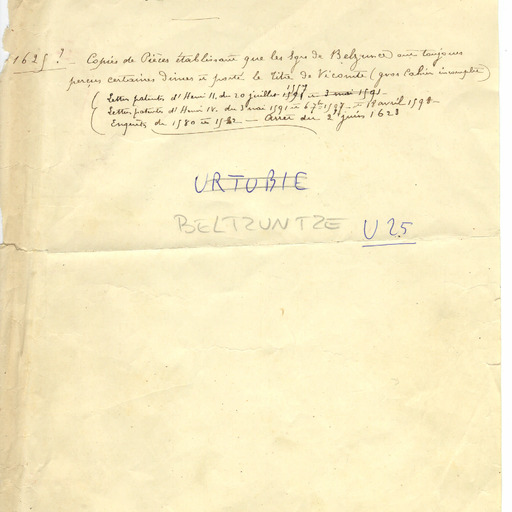 1625? Copies de Pièces établissant que les Sgrs de Belzunce ont toujours
perçus certaines dimes et porté le titre de Vicomte (gros Cahier incomplet)
Lettres patentes d'Henri II, du 20 juillet 1557 et 3 mai 1591
Lettres patentes d'Henri IV. du 3 mai 1591 et 6 7bre 1597 et 18 avril 1598
Enquête de 1580 et 1582 — Arrêt du 2 juin 1623
URTUBIE
BELTZUNTZE U25